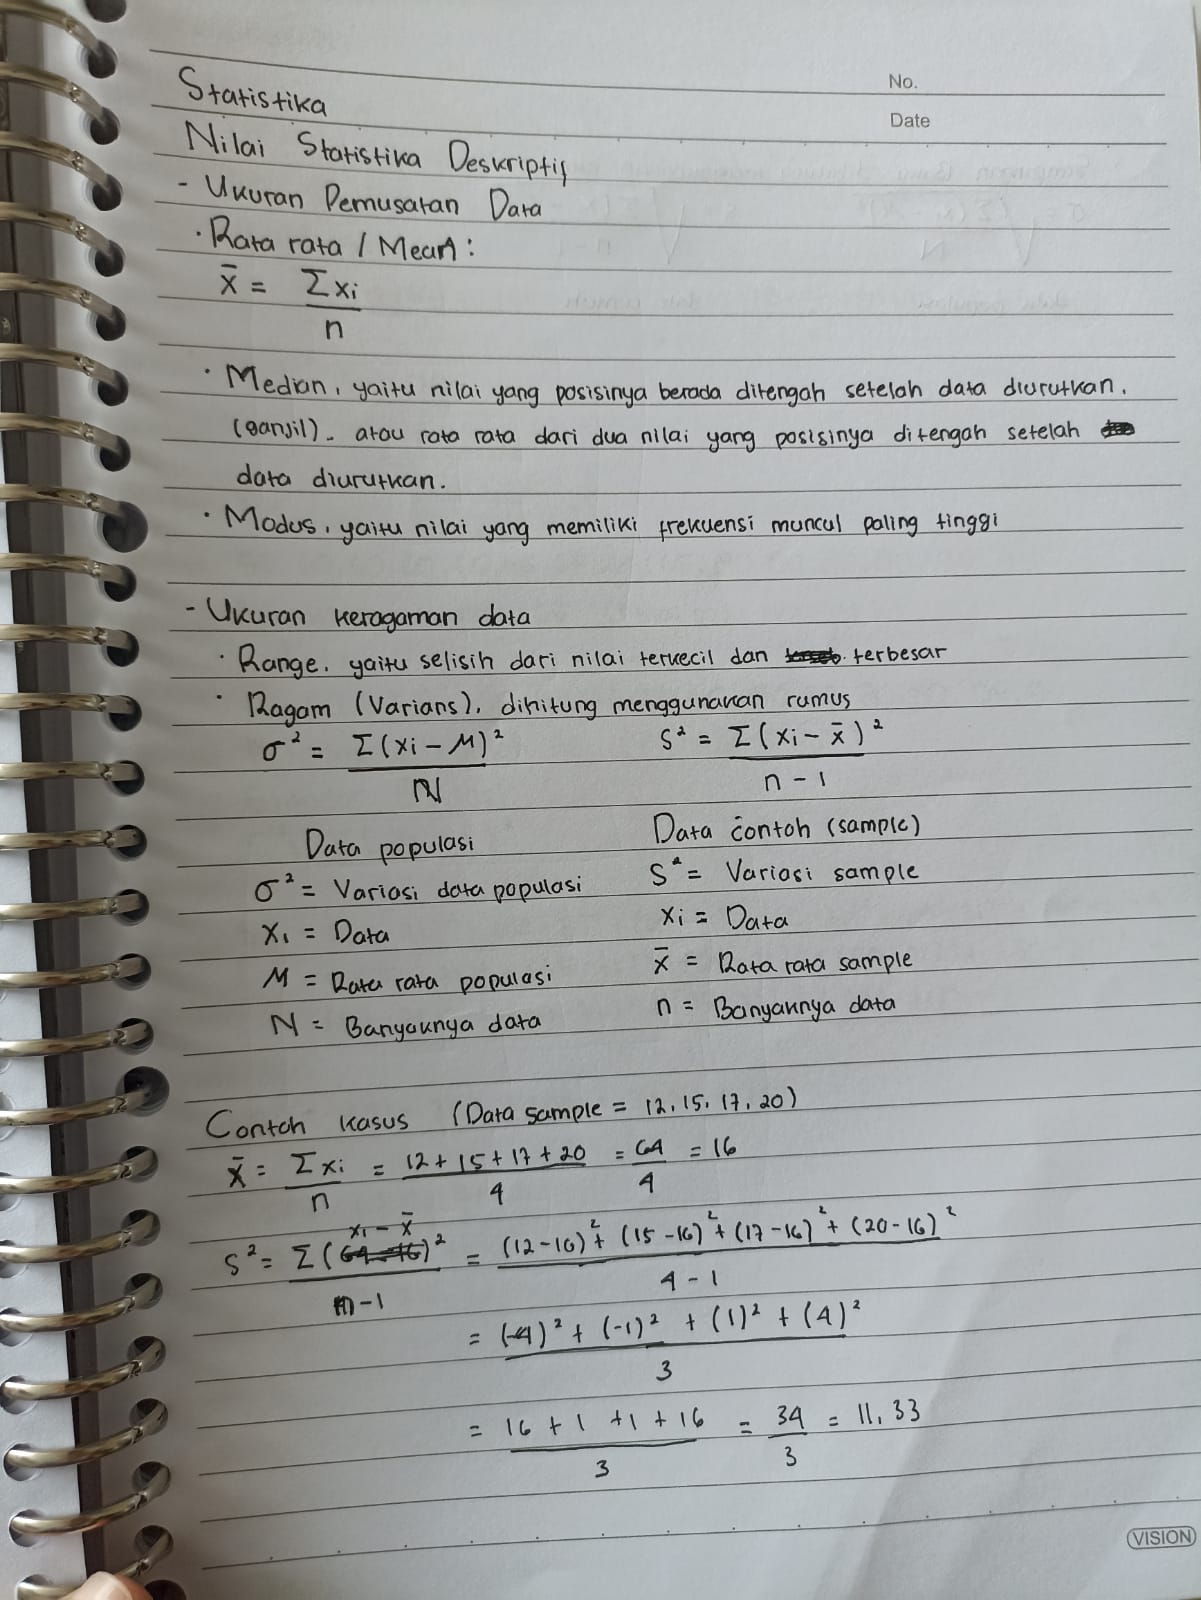 No.
Date
Statistika
Nilai Statistika Deskriptif
- Ukuran Pemusatan Data
· Rata rata / Mean :
x̄ = Σxi / n
· Median, yaitu nilai yang posisinya berada ditengah setelah data diurutkan.
(Ganjil). atau rata rata dari dua nilai yang posisinya ditengah setelah
data diurutkan.
· Modus, yaitu nilai yang memiliki frekuensi muncul paling tinggi
- Ukuran keragaman data
· Range, yaitu selisih dari nilai terkecil dan terbesar
· Ragam (Varians), dihitung menggunakan rumus
σ² = Σ(xi – M)² / N    S² = Σ(xi – x̄)² / n – 1
Data populasi    Data contoh (sample)
σ² = Variasi data populasi    S² = Variasi sample
X₁ = Data    Xi = Data
M = Rata rata populasi    x̄ = Rata rata sample
N = Banyaknya data    n = Banyaknya data
Contoh kasus (Data sample = 12, 15, 17, 20)
x̄ = Σxi / n = 12 + 15 + 17 + 20 / 4 = 64 / 4 = 16
S² = Σ(x₁ – x̄)² / n – 1 = (12 – 16)² + (15 – 16)² + (17 – 16)² + (20 – 16)² / 4 – 1
= (-4)² + (-1)² + (1)² + (4)² / 3
= 16 + 1 + 1 + 16 / 3 = 34 / 3 = 11,33
VISION